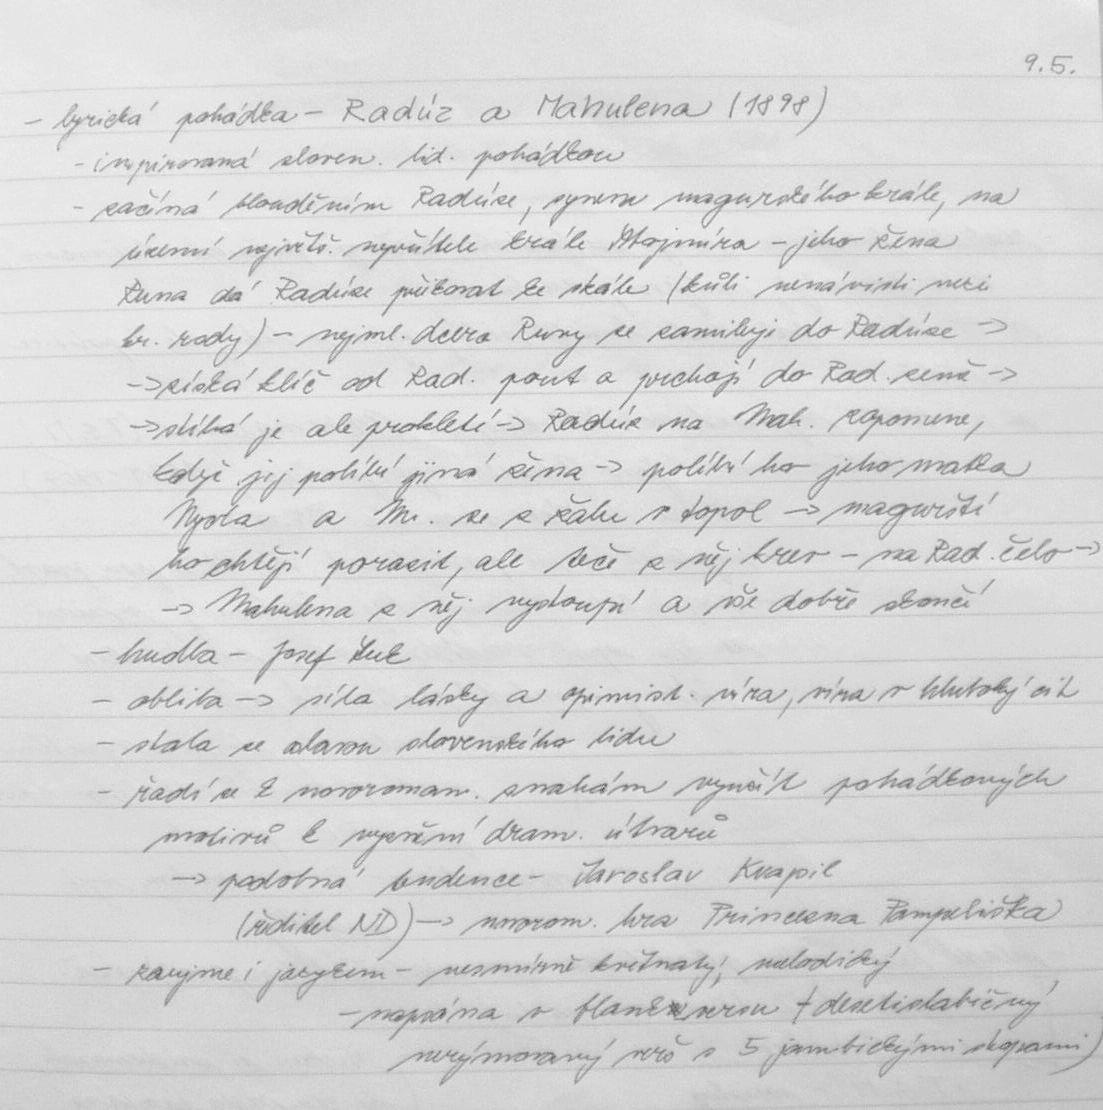 9.5.
- lyrická pohádka - Radúz a Mahulena (1898)
- inspirovaná sloven. lid. pohádkou
- začíná blouděním Radúze, synem magurského krále, na
území největš. nepřítele krále Stojmíra - jeho žena
Runa dá Radúze přikovat ke skále (kůli nenávisti mezi
kr. rody) - nejml. dcera Runy se zamiluje do Radúze ->
-> získá klíč od Rad. pout a prchají do Rad. země ->
-> stíhá je ale prokletí -> Radúz na Mah. zapomene,
když jej políbí jiná žena -> políbí ho jeho matka
Nyola a M. se z žalu v topol -> magurští
ho chtějí porazit, ale teče z něj krev - na Rad. čelo ->
-> Mahulena z něj vystoupí a vše dobře skončí
- hudba - Josef Suk
- obliba -> síla lásky a opimist. víra, víra v hluboký cit
- stala se oslavou slovenského lidu
- řadí se k novoroman. snahám využít pohádkových
motivů k dram. útvarů
-> podobná tendence - Jaroslav Kvapil
(ředitel ND) -> novorom. hra Princezna Pampeliška
- zaujme i jazykem - nesmírně květnatý, melodický
- napsána v blankversu (desetislabičný
nerýmovaný verš s 5 jambickými stopami)